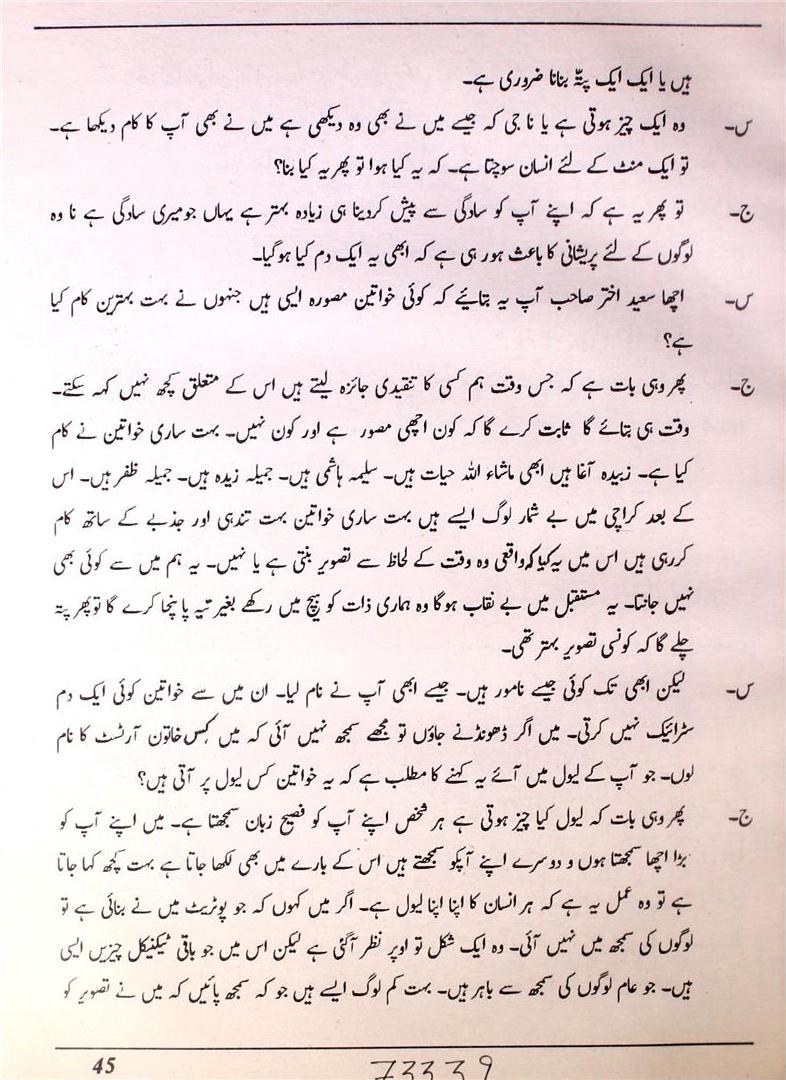 ہیں یا ایک ایک پتہّ بنانا ضروری ہے۔
س۔ وہ ایک چیز ہوتی ہے یا نا جی کہ جیسے میں نے بھی وہ دیکھی ہے میں نے بھی آپ کا کام دیکھا ہے۔
تو ایک منٹ کے لئے انسان سوچتا ہے۔ کہ یہ کیا ہوا تو پھر یہ کیا بنا؟
ج۔ تو پھر یہ ہے کہ اپنے آپ کو سادگی سے پیش کردینا ہی زیادہ بہتر ہے یہاں جومیری سادگی ہے نا وہ
لوگوں کے لئے پریشانی کا باعث ہور ہی ہے کہ ابھی یہ ایک دم کیا ہوگیا۔
س۔ اچھا سعید اختر صاحب آپ یہ بتائیے کہ کوئی خواتین مصورہ ایسی ہیں جنہوں نے بہت بہترین کام کیا
ہے؟
ج۔ پھر وہی بات ہے کہ جس وقت ہم کسی کا تنقیدی جائزہ لیتے ہیں اس کے متعلق کچھ نہیں کہہ سکتے۔
وقت ہی بتائے گا ثابت کرے گا کہ کون اچھی مصور ہے اور کون نہیں۔ بہت ساری خواتین نے کام
کیا ہے۔ زبیدہ آغا ہیں ابھی ماشاء اللہ حیات ہیں۔ سلیمہ ہاشمی ہیں۔ جمیلہ زیدہ ہیں۔ جمیلہ ظفر ہیں۔ اس
کے بعد کراچی میں بے شمار لوگ ایسے ہیں بہت ساری خواتین بہت تندہی اور جذبے کے ساتھ کام
کررہی ہیں اس میں یہ کیا کہ واقعی وہ وقت کے لحاظ سے تصویر بنتی ہے یا نہیں۔ یہ ہم میں سے کوئی بھی
نہیں جانتا۔ یہ مستقبل میں بے نقاب ہوگا وہ ہماری ذات کو بیچ میں رکھے بغیر تیہ پانچا کرے گا تو پھر پتہ
چلے گا کہ کونسی تصویر بہتر تھی۔
س۔ لیکن ابھی تک کوئی جیسے نامور ہیں۔ جیسے ابھی آپ نے نام لیا۔ ان میں سے خواتین کوئی ایک دم
سٹرائیک نہیں کرتی۔ میں اگر ڈھونڈنے جاؤں تو مجھے سمجھ نہیں آئی کہ میں کس خاتون آرٹسٹ کا نام
لوں۔ جو آپ کے لیول میں آئے یہ کہنے کا مطلب ہے کہ یہ خواتین کس لیول پر آتی ہیں؟
ج۔ پھر وہی بات کہ لیول کیا چیز ہوتی ہے ہر شخص اپنے آپ کو فصیح زبان سمجھتا ہے۔ میں اپنے آپ کو
بڑا اچھا سمجھتا ہوں و دوسرے اپنے آپکو سمجھتے ہیں اس کے بارے میں بھی لکھا جاتا ہے بہت کچھ کہا جاتا
ہے تو وہ عمل یہ ہے کہ ہر انسان کا اپنا اپنا لیول ہے۔ اگر میں کہوں کہ جو پوٹریٹ میں نے بنائی ہے تو
لوگوں کی سمجھ میں نہیں آئی۔ وہ ایک شکل تو اوپر نظر آگئی ہے لیکن اس میں جو باقی ٹیکنیکل چیزیں ایسی
ہیں۔ جو عام لوگوں کی سمجھ سے باہر ہیں۔ بہت کم لوگ ایسے ہیں جو کہ سمجھ پائیں کہ میں نے تصویر کو
45
73339